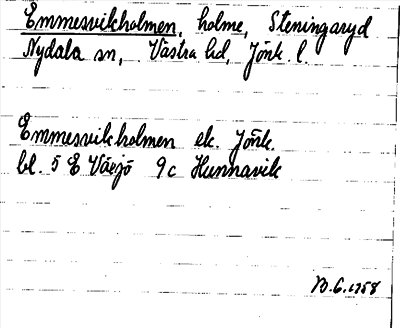 Emmesvikholmen, holme, Steningaryd
Nydala sn, Västra hd, Jönk. l.
Emmesvikholmen ek. Jönk.
bl. 5 E Växjö 9c Hunnavik
B.G. 1958